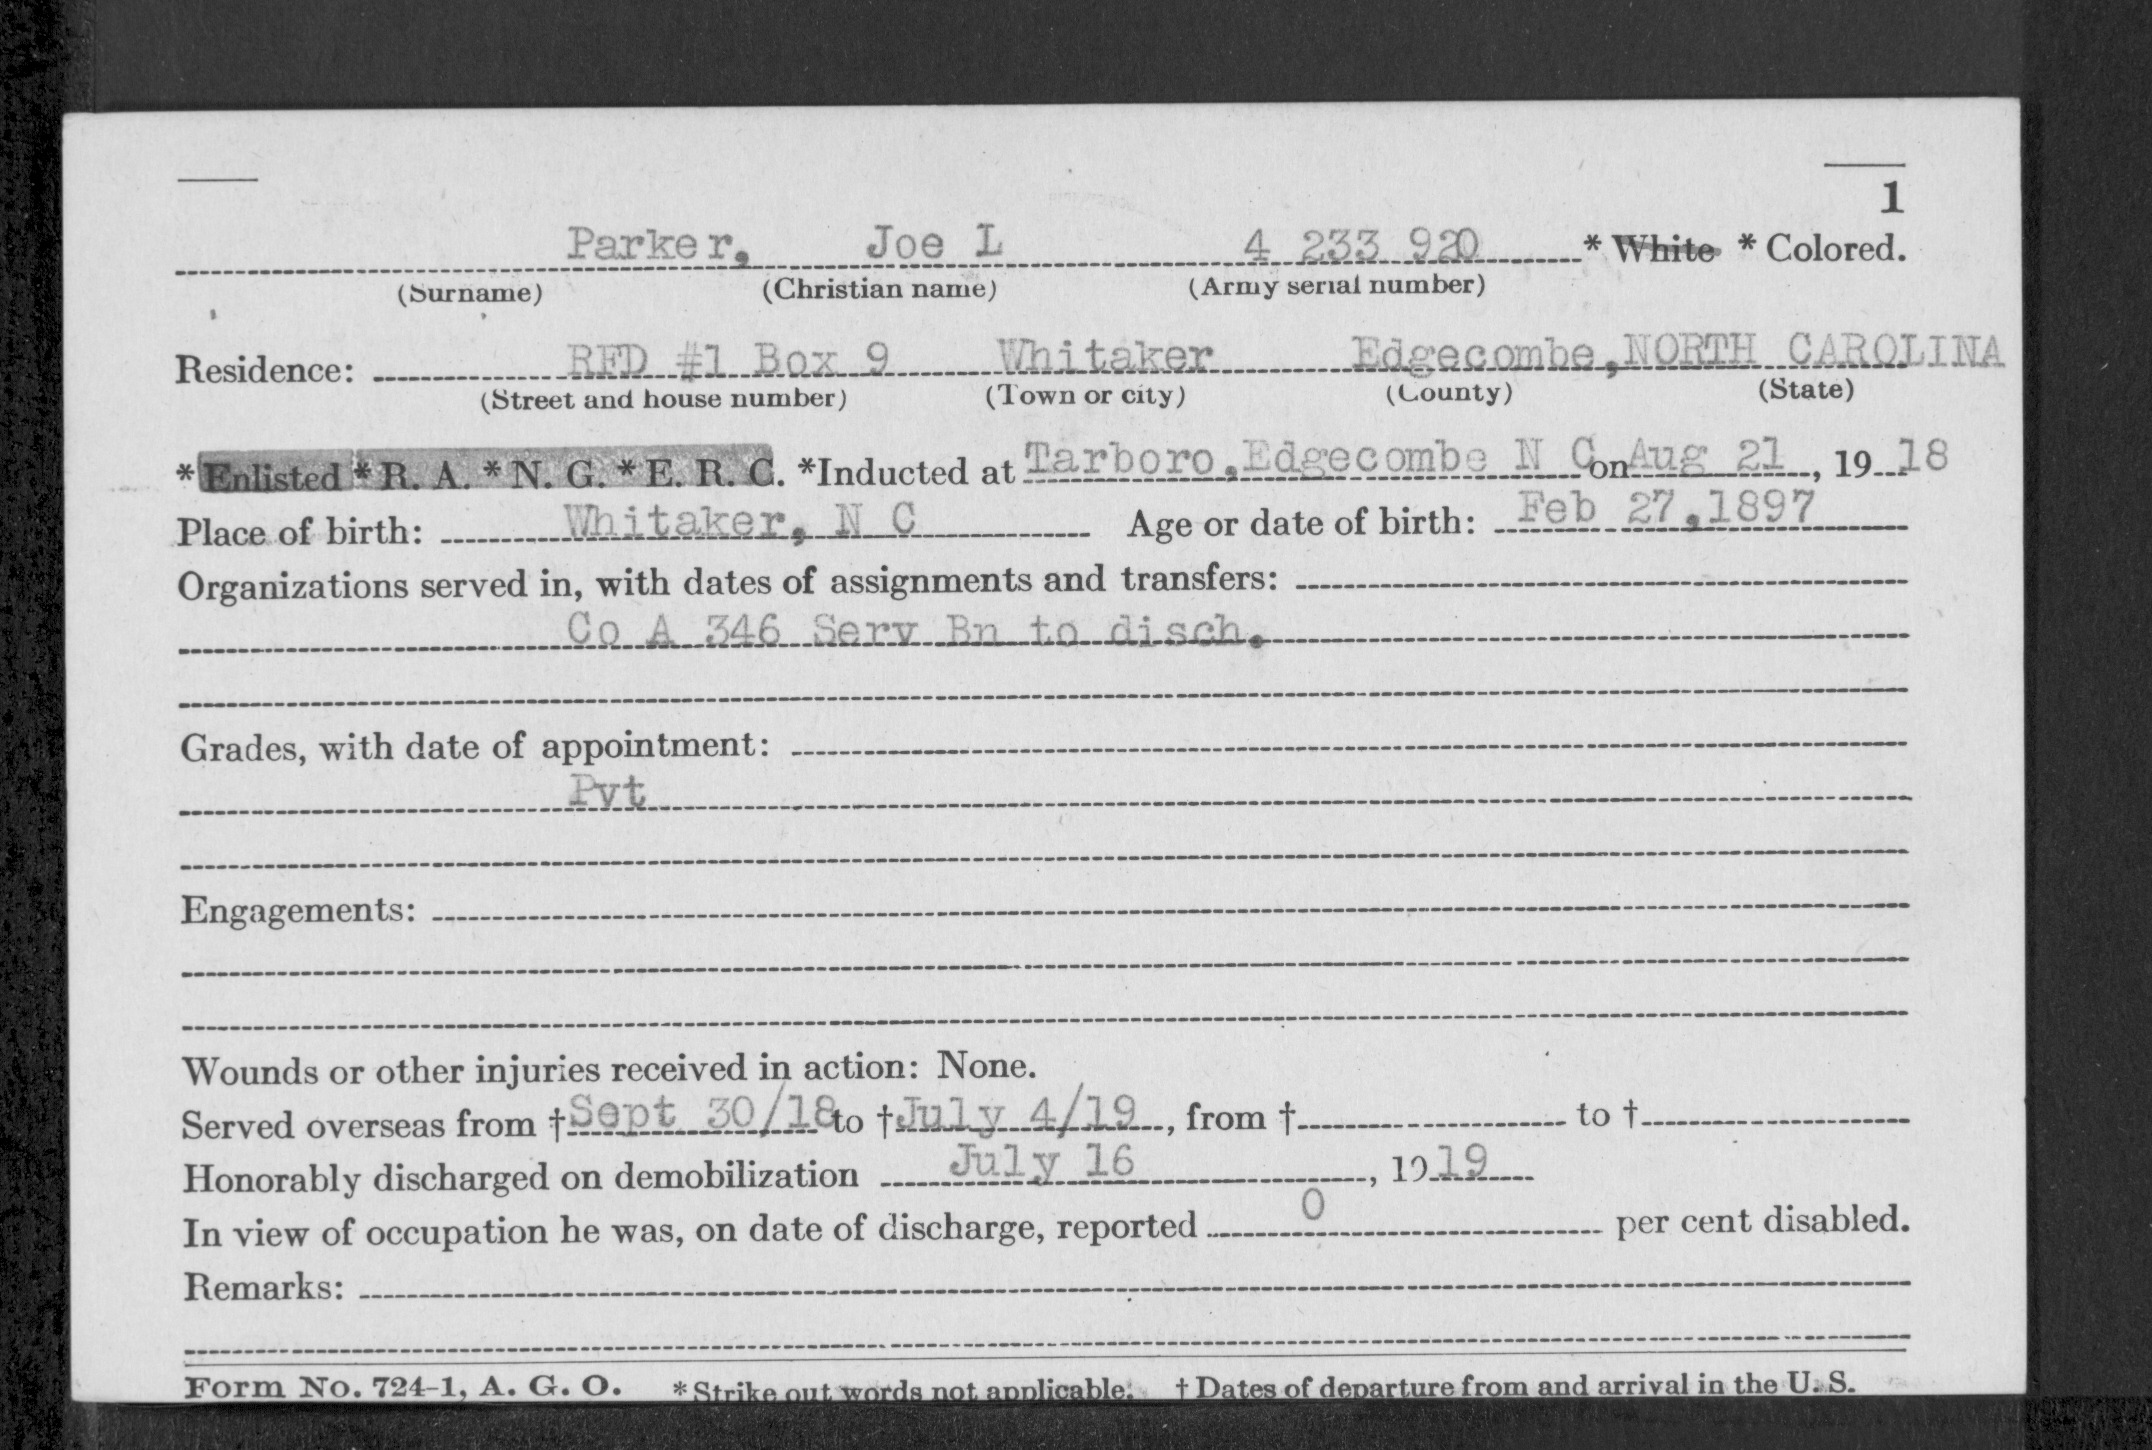 1
Parker, Joe L 4 233 920 * White * Colored.
(Surname) (Christian name) (Army serial number)
Residence: RFD #1 Box 9 Whitaker Edgecombe, NORTH CAROLINA
(Street and house number) (Town or city) (County) (State)
* Enlisted * R. A. * N. G. * E. R. C. *Inducted at Tarboro, Edgecombe N C on Aug 21, 19 18
Place of birth: Whitaker, N C Age or date of birth: Feb 27, 1897
Organizations served in, with dates of assignments and transfers:
Co A 346 Serv Bn to disch.
Grades, with date of appointment:
Pvt
Engagements:
Wounds or other injuries received in action: None.
Served overseas from † Sept 30/18 to † July 4/19, from † to †
Honorably discharged on demobilization July 16, 19 19
In view of occupation he was, on date of discharge, reported 0 per cent disabled.
Remarks:
Form No. 724-1, A. G. O. * Strike out words not applicable. † Dates of departure from and arrival in the U. S.